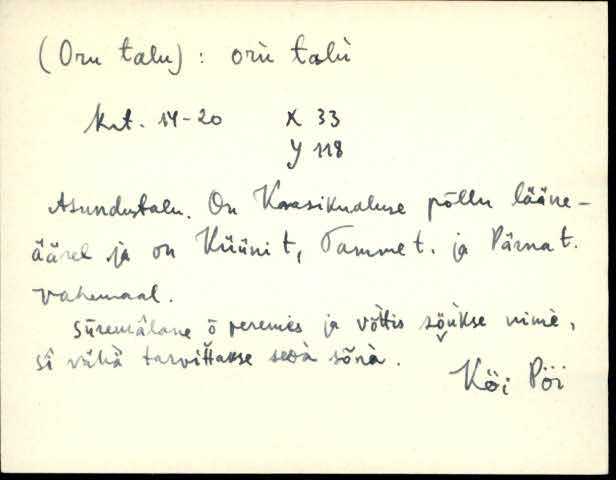 (Oru talu) : orù talù
krt. 14-20 X 33
Y 118
Asundustalu. On Kaasiknaluse põllu lääne-
äärel ja on Küüni t, Tamme t. ja Pärna t.
vahemaal.
süremàlane ō peremès ja võttis sööukse nimè,
si vähä tarvittakse sedà sõnà.
Köi Pöi